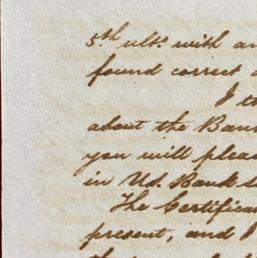 5th ulto. with an
found correct
I t
about the Bank
you will pleas
in Us. Bank s
The Certifica
present, and I